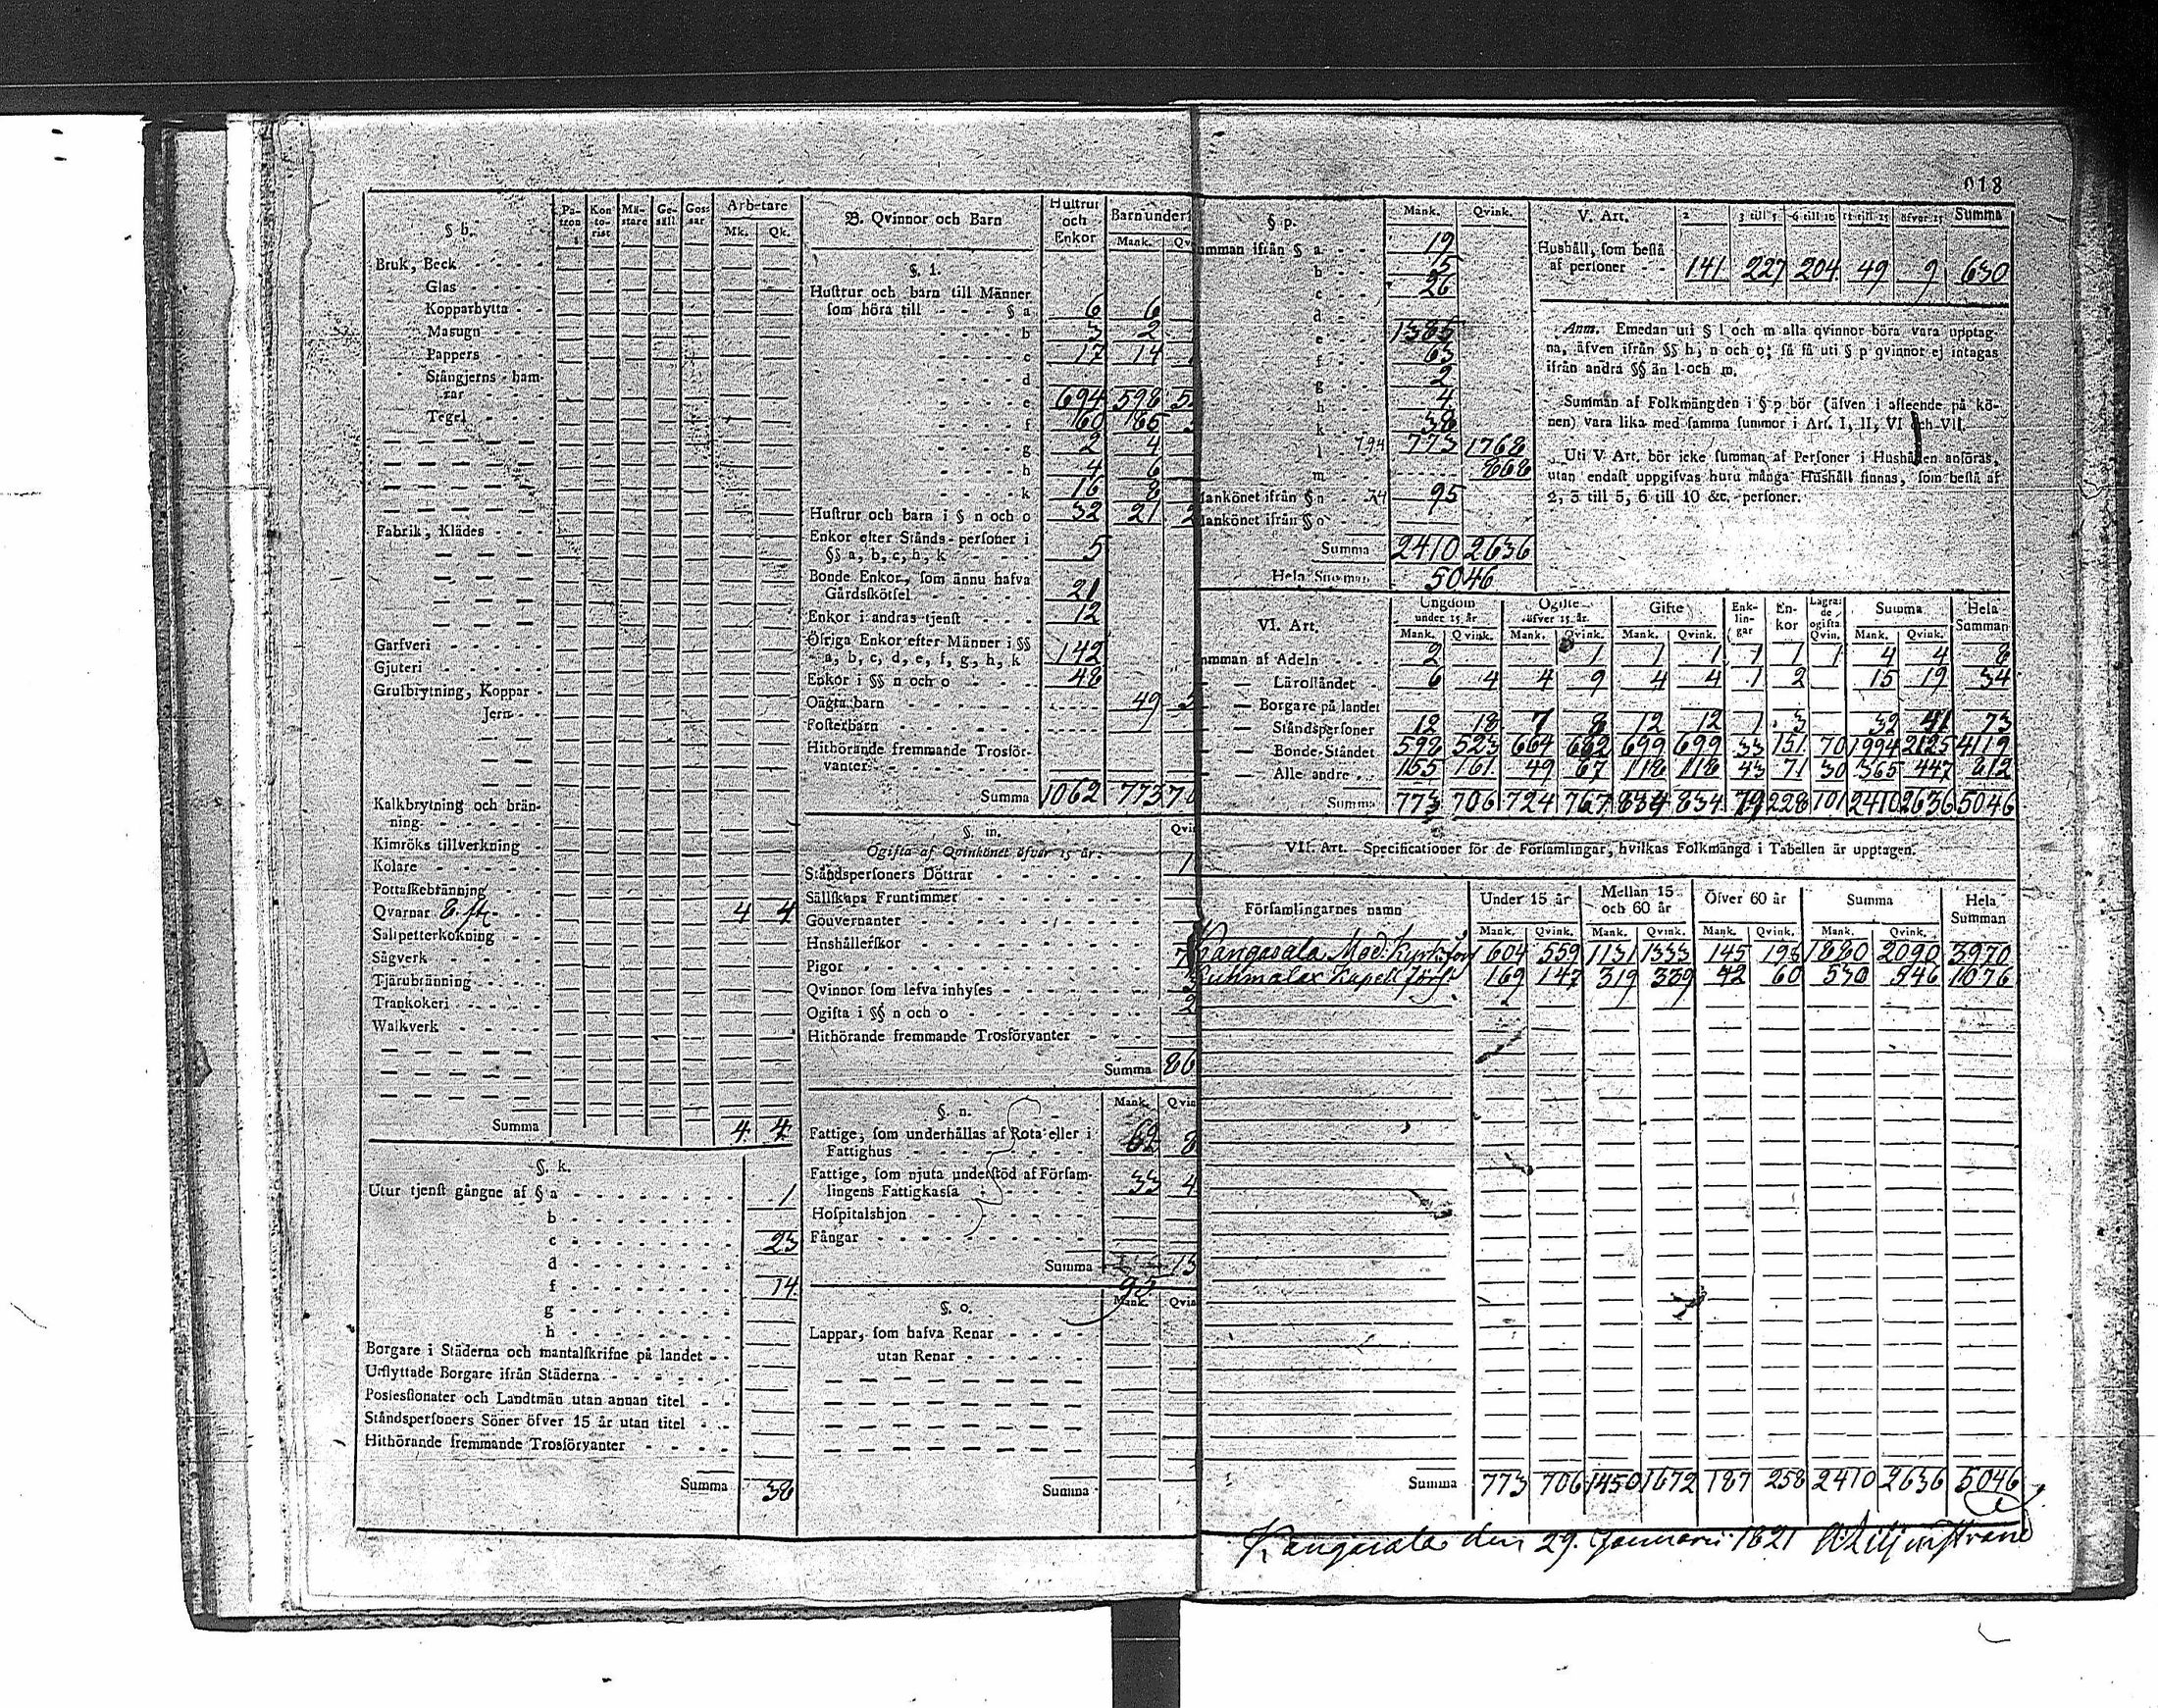 018
§ h. Pa-tron Kon-to-rist Mä-stare Ge-säll Gos-sar Arbetare
Mk. Qk.
Bruk, Beck
Glas
Kopparhytta
Masugn
Pappers
Stångjerns-ham-
rar
Tegel
Fabrik, Klädes
Garfveri
Gjuteri
Grufbrytning, Koppar
Jern
Kalkbrytning och brän-
ning
Kimröks tillverkning
Kolare
Pottaskebränning
Qvarnar 8 st. 4 4
Saltpetterkokning
Sågverk
Tjärubränning
Trankokeri
Walkverk
Summa 4 4
§. k.
Utur tjenst gångne af § a 1
b
c 23
d
f 14
g
h
Borgare i Städerna och mantalskrifne på landet
Utflyttade Borgare ifrån Städerna
Possessionater och Landtmän utan annan titel
Ståndspersoners Söner öfver 15 år utan titel
Hithörande fremmande Trosförvanter
Summa 38
B. Qvinnor och Barn Hustrur och Enkor Barn under
Mank. Qv
§. l.
Hustrur och barn till Männer
som höra till § a 6 6
b 3 2
c 17 14
d
e 694 598 5
f 60 65
g 2 4
h 4 6
k 16 8
Hustrur och barn i § n och o 32 21 2
Enkor efter Stånds-personer i
§§ a, b, c, h, k 5
Bonde Enkor, som ännu hafva
Gårdsskötsel 21
Enkor i andras tjenst 12
Öfriga Enkor efter Männer i §§
a, b, c, d, e, f, g, h, k 142
Enkor i §§ n och o 48
Oägta barn 49 5
Fosterbarn
Hithörande fremmande Trosför-
vanter
Summa 1062 773 70
§. m. Qvi
Ogifta af Qvinkönet öfver 15 år.
Ståndspersoners Döttrar 1
Sällskaps Fruntimmer
Gouvernanter
Hushållerskor
Pigor 7
Qvinnor som lefva inhyses
Ogifta i §§ n och o 2
Hithörande fremmande Trosförvanter
Summa 86
§. n. Mank. Qvin
Fattige, som underhållas af Rota eller i
Fattighus 62 8
Fattige, som njuta understöd af Försam-
lingens Fattigkassa 33 4
Hospitalshjon
Fångar
Summa 95 13
§. o. Mank. Qvin
Lappar, som hafva Renar
utan Renar
Summa
§ p. Mank. Qvink.
umman ifrån § a 19
b 5
c 26
d
e 1385
f 63
g 2
h 4
k 38
l 794 773 1768
m 868
Mankönet ifrån § n 95
Mankönet ifrån § o
Summa 2410 2636
Hela Summan 5046
V. Art. 2 3 till 5 6 till 10 11 till 15 öfver 15 Summa
Hushåll, som bestå
af personer 141 227 204 49 9 630
Anm. Emedan uti § l och m alla qvinnor böra vara upptag-
na, äfven ifrån §§ h, n och o; så få uti § p qvinnor ej intagas
ifrån andra §§ än l och m.
Summan af Folkmängden i § p bör (äfven i afseende på kö-
nen) vara lika med samma summor i Art. I, II, VI och VII.
Uti V Art. bör icke summan af Personer i Hushållen anföras,
utan endast uppgifvas huru många Hushåll finnas, som bestå af
2, 3 till 5, 6 till 10 &c. personer.
VI. Art. Ungdom under 15 år Ogifte öfver 15 år Gifte Enk-lin-gar En-kor Lägra-de ogifta Summa Hela Summan
Mank. Qvink. Mank. Qvink. Mank. Qvink. Qvin. Mank. Qvink.
umman af Adeln 2 1 1 1 1 1 1 4 4 8
— Läroståndet 6 4 4 9 4 4 1 2 15 19 34
— Borgare på landet
— Ståndspersoner 12 18 7 8 12 12 1 3 32 41 73
— Bonde-Ståndet 598 523 664 682 699 699 33 151 70 1994 2125 4119
— Alle andre 155 161 49 67 118 118 43 71 30 365 447 812
Summa 773 706 724 767 834 834 79 228 101 2410 2636 5046
VII. Art. Specificationer för de Församlingar, hvilkas Folkmängd i Tabellen är upptagen.
Församlingarnes namn Under 15 år Mellan 15 och 60 år Öfver 60 år Summa Hela Summan
Mank. Qvink. Mank. Qvink. Mank. Qvink. Mank. Qvink.
Kangasala Mod. Kyrk. förs 604 559 1131 1333 145 198 1880 2090 3970
Kuhmalax Kapell Förs 169 147 319 339 42 60 530 546 1076
Summa 773 706 1450 1672 187 258 2410 2636 5046
Kangasala den 29. Januarii 1821